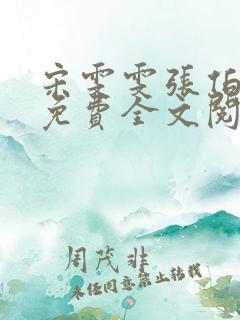 宋雯雯張伯
免費全文閱
周茂非
未經同意禁止轉載